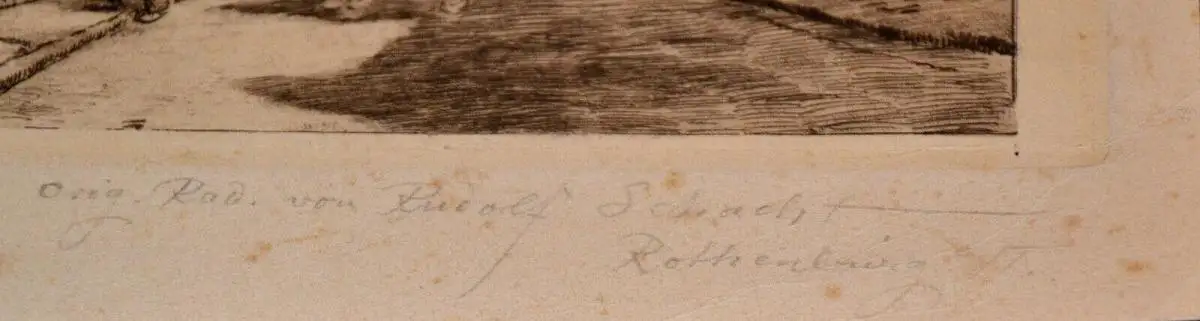 Orig. Rad. von Rudolf Schacht
Rothenburg o/T.